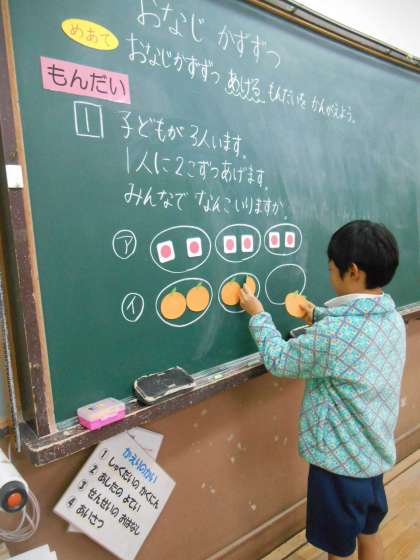 おなじ かずずつ
めあて
おなじかずずつ あげる もんだいを かんがえよう。
もんだい
1 子どもが 3人います。
1人に 2こずつあげます。
みんなで なんこいりますか。
ア
イ
かえりのかい
1 しゅくだいの、かくにん
2 あしたの、よてい
3 せんせいの、おはなし
4 あいさつ